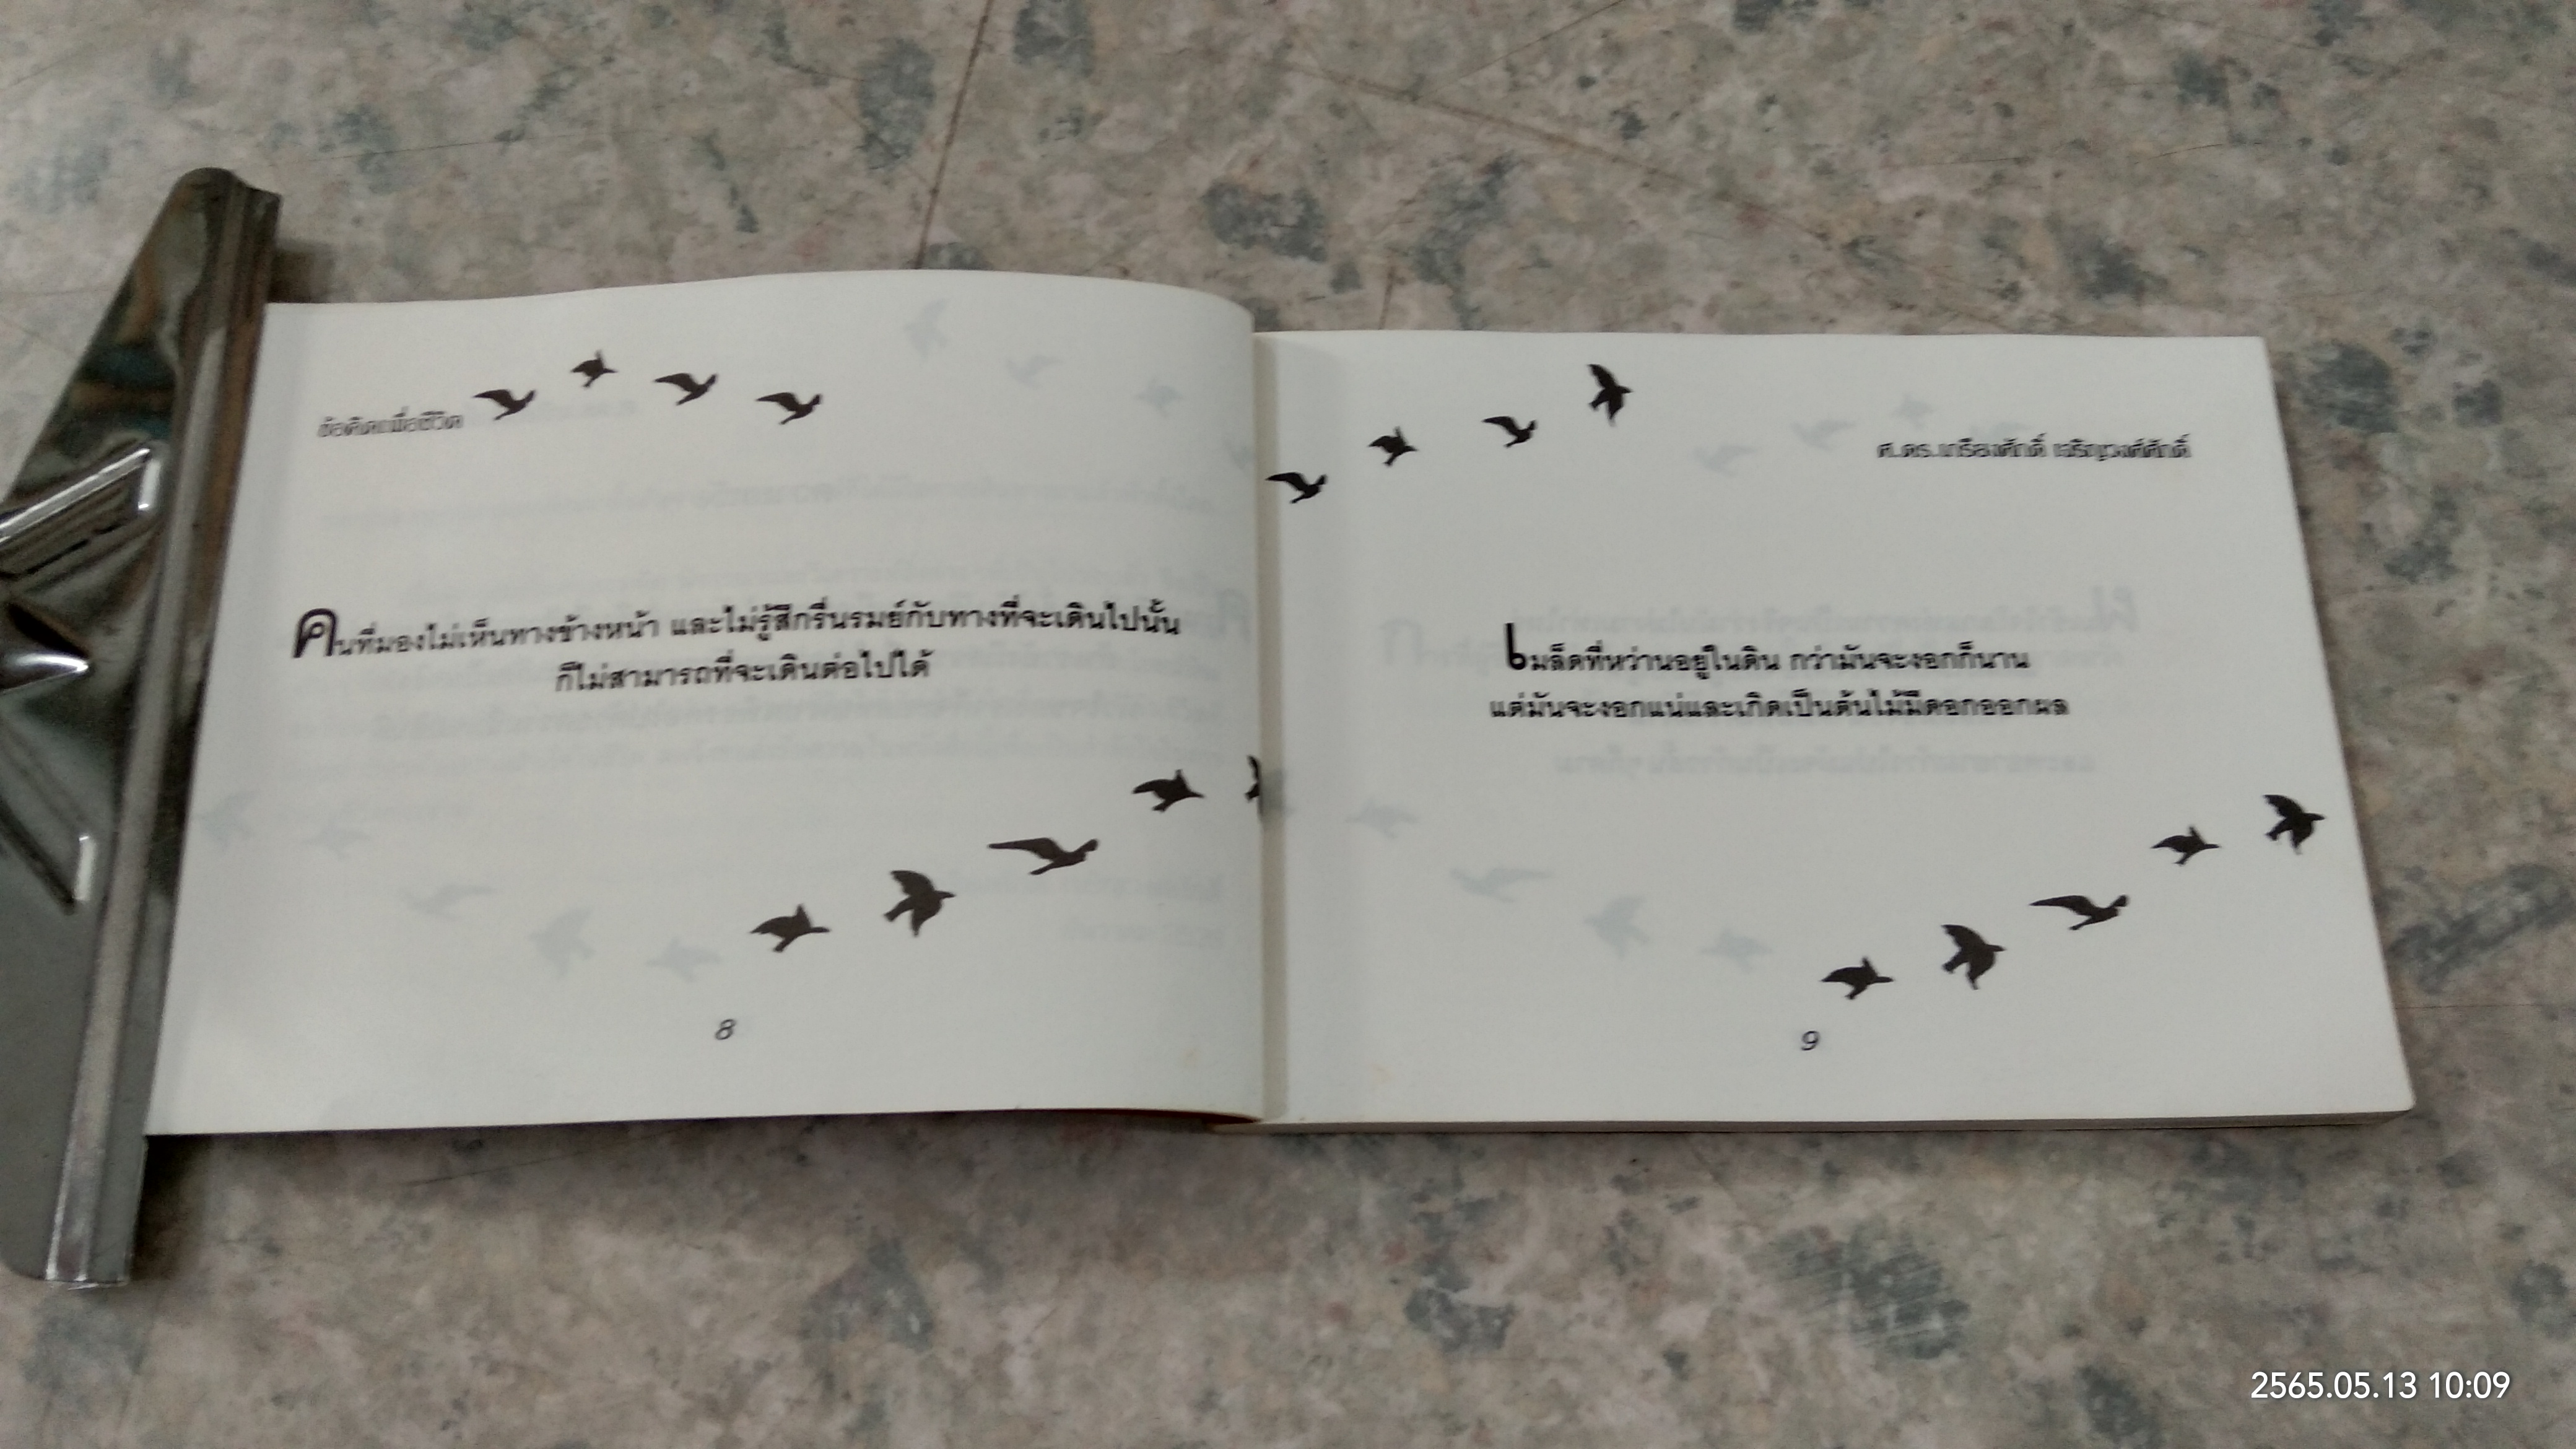 ข้อคิดเพื่อชีวิต
คนที่มองไม่เห็นทางข้างหน้า และไม่รู้สึกรื่นรมย์กับทางที่จะเดินไปนั้น
ก็ไม่สามารถที่จะเดินต่อไปได้
8
ศ.ดร.เกรียงศักดิ์ เจริญวงศ์ศักดิ์
เมล็ดที่หว่านอยู่ในดิน กว่ามันจะงอกก็นาน
แต่มันจะงอกแน่และเกิดเป็นต้นไม้มีดอกออกผล
9
2565.05.13 10:09